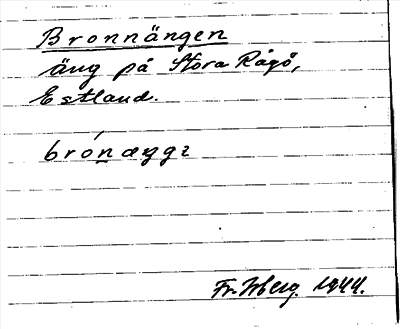 Bronnängen
äng på Stora Rågö,
Estland.
brónæggɿ
Fr. Isberg. 1944.